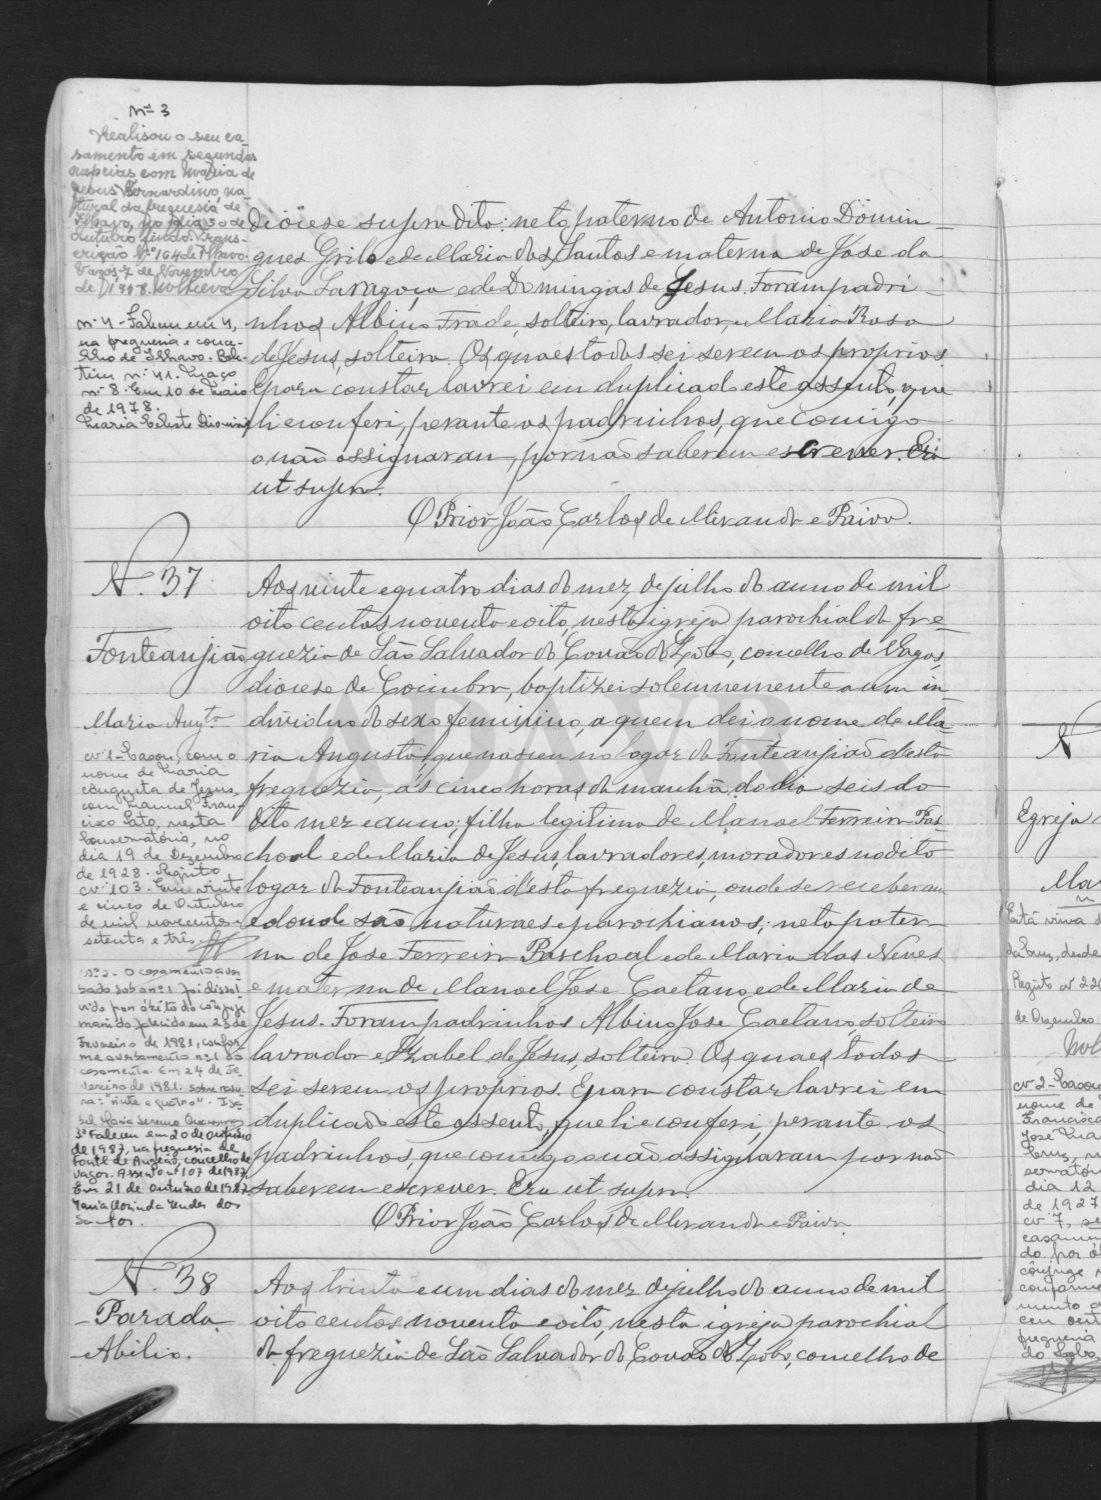 Nº 3
Realisou o seu ca-
samento em segundas
nupcias com Maria de
Jesus Bernardino, na-
tural da freguesia de
Ilhavo, no dia 30 de
Outubro findo. Trans-
crição Nº 164 de Ilhavo.
Vagos, 7 de Novembro
de
nº 4 - Faleceu em 4,
na freguesia e conce-
lho de Ilhavo. Bole-
tim nº 41. Maço
nº 8. Em 10 de Maio
de 1978.
Maria Celeste
diocese supra dita: neto paterno de Antonio Domin-
gues Grilo e de Maria dos Santos e materno de Jose da
Silva Sarragoça e de Domingas de Jesus. Foram padri-
nhos Albino Frade, solteiro, lavrador, e Maria Rosa
de Jesus, solteira. Os quaes todos sei serem os proprios.
E para constar lavrei em duplicado este assento, que
li e conferi, perante os padrinhos, que comigo
o não assignaram, por não saberem escrever. Era
ut supra.
O Prior João Carlos de Miranda e Paiva.
N. 37
Fonteanjião
Maria Augta
Aos vinte e quatro dias do mez de julho do anno de mil
oito centos noventa e oito, nesta igreja parochial da fre-
guezia de São Salvador do Covão do Lobo, concelho de Vagos,
diocese de Coimbra, baptizei solemnemente a um in-
dividuo do sexo feminino, a quem dei o nome de Ma-
ria Augusta, que nasceu no logar da Fonteanjião desta
freguezia, ás cinco horas da manhã do dia seis do
dito mez e anno; filha legitima de Manoel Ferreira Pas-
choal e de Maria de Jesus, lavradores, moradores no dito
logar da Fonteanjião d'esta freguezia, onde se receberam
e donde são naturaes e parochianos; neta pater-
na de Jose Ferreira Paschoal e de Maria das Neves
e materna de Manoel Jose Caetano e de Maria de
Jesus. Foram padrinhos Albino Jose Caetano, solteiro
lavrador e Izabel de Jesus, solteira. Os quaes todos
sei serem os proprios. E para constar lavrei em
duplicado este assento, que li e conferi, perante os
padrinhos, que comigo o não assignaram por não
saberem escrever. Era ut supra.
O Prior João Carlos de Miranda e Paiva
nº 1 - Casou, com o
nome de Maria
Augusta de Jesus,
com Manuel Fran-
cisco Pato, nesta
Conservatória, no
dia 19 de Dezembro
de 1928. Registo
nº 103. Em vinte
e cinco de Outubro
de mil novecentos e
setenta e três.
Nº 2 - O casamento aver-
bado sob o nº 1 foi dissol-
vido por óbito do cônjuge
marido falecido em 23 de
Fevereiro de 1981, confor-
me averbamento nº 1 ao
casamento. Em 24 de Fe-
vereiro de 1981.
3º Faleceu em 20 de Outubro
de 1987, na freguesia de
Fonte de Angeão, concelho de
Vagos. Assento nº 107 de 1987.
Em 21 de Outubro de 1987
Maria Clorinda Mendes dos
Santos.
N. 38
Parada
Abilio.
Aos trinta e um dias do mez de julho do anno de mil
oito centos noventa e oito, nesta igreja parochial
da freguezia de São Salvador do Covão do Lobo, concelho de
ADAVR
N
Egreja
Mar
Está viva
Registo nº 220
de Dezembro
nº 2 - Casou
nome de
Francisco
José
dia 12
de 1927
nº 7,
casamen
do por ó
cônjuge
conforme
mento
freguesia
do Lobo